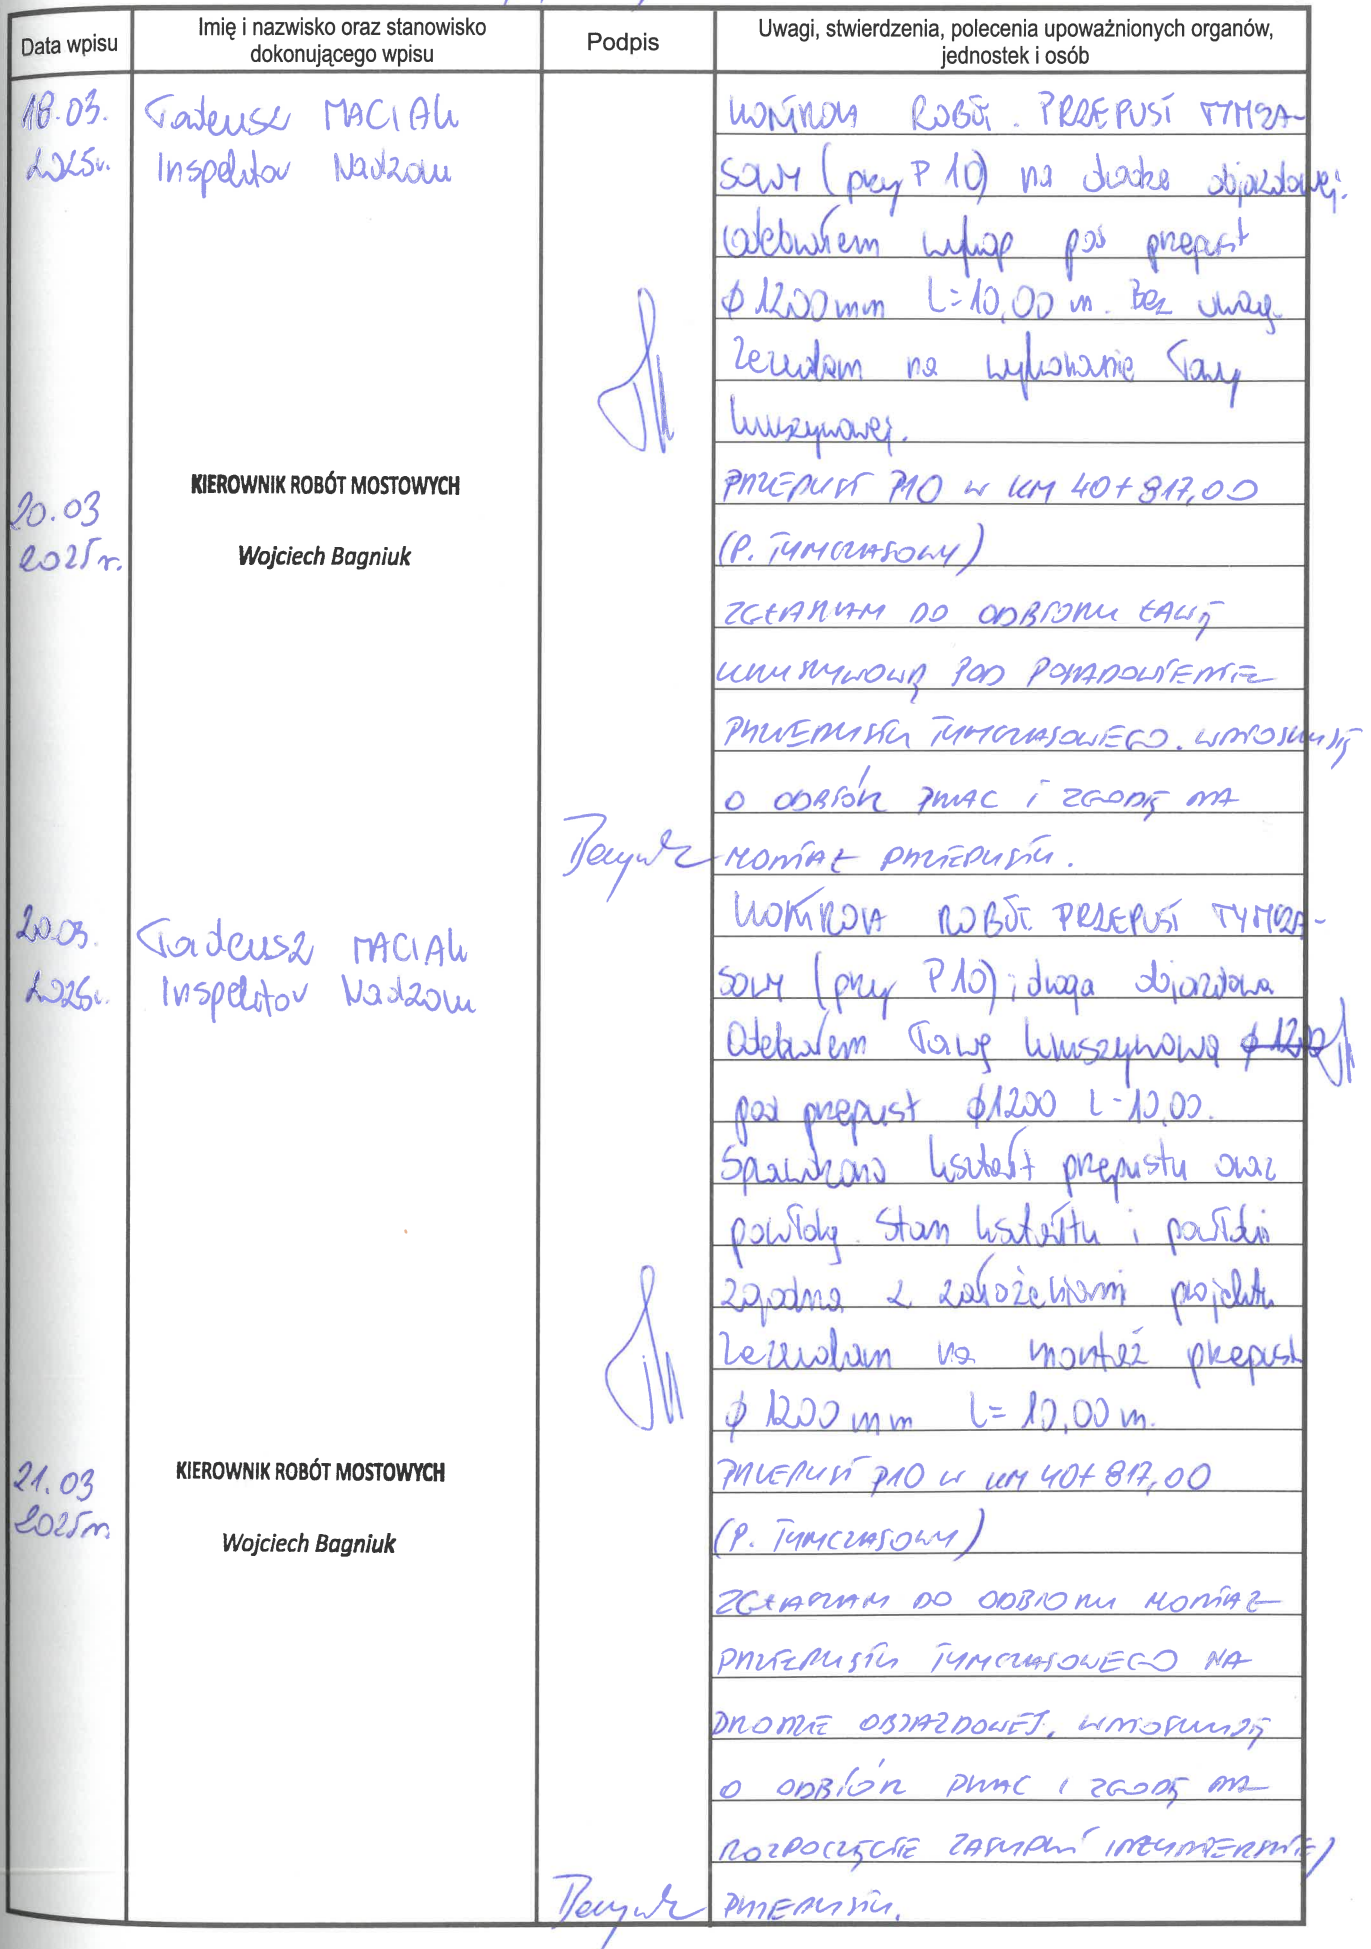 Data wpisu
Imię i nazwisko oraz stanowisko
dokonującego wpisu
Podpis
Uwagi, stwierdzenia, polecenia upoważnionych organów,
jednostek i osób
18.03.
2025r.
Tadeusz MACIAK
Inspektor Nadzoru
KONTROLA ROBÓT. PRZEPUST TYMCZA-
SOWY (przy P10) na drodze objazdowej.
Odebrałem wykop pod przepust
φ 1200mm L=10,00 m. Bez uwag.
Zezwalam na wykonanie ławy
kruszywowej.
20.03
2025r.
KIEROWNIK ROBÓT MOSTOWYCH
Wojciech Bagniuk
PRZEPUST P10 W KM 40+817,00
(P. TYMCZASOWY)
ZGŁASZAM DO ODBIORU ŁAWĘ
KRUSZYWOWĄ POD POSADOWIENIE
PRZEPUSTU TYMCZASOWEGO. WNIOSKUJĘ
O ODBIÓR PRAC I ZGODĘ NA
MONTAŻ PRZEPUSTU.
20.03.
2025r.
Tadeusz MACIAK
Inspektor Nadzoru
KONTROLA ROBÓT. PRZEPUST TYMCZA-
SOWY (przy P10) i droga objazdowa
Odebrałem ławę kruszywową φ 120
pod przepust φ1200 L-10,00.
Sprawdzono kształt przepustu oraz
powłokę. Stan kształtu i powłoki
zgodna z założeniami projektu
Zezwalam na montaż przepust
φ 1200 mm L= 10,00 m.
21.03
2025r.
KIEROWNIK ROBÓT MOSTOWYCH
Wojciech Bagniuk
PRZEPUST P10 W KM 40+817,00
(P. TYMCZASOWY)
ZGŁASZAM DO ODBIORU MONTAŻ
PRZEPUSTU TYMCZASOWEGO NA
DRODZE OBJAZDOWEJ. WNIOSKUJĘ
O ODBIÓR PRAC I ZGODĘ NA
ROZPOCZĘCIE ZASYPKI INŻYNIERSKIEJ
PRZEPUSTU.